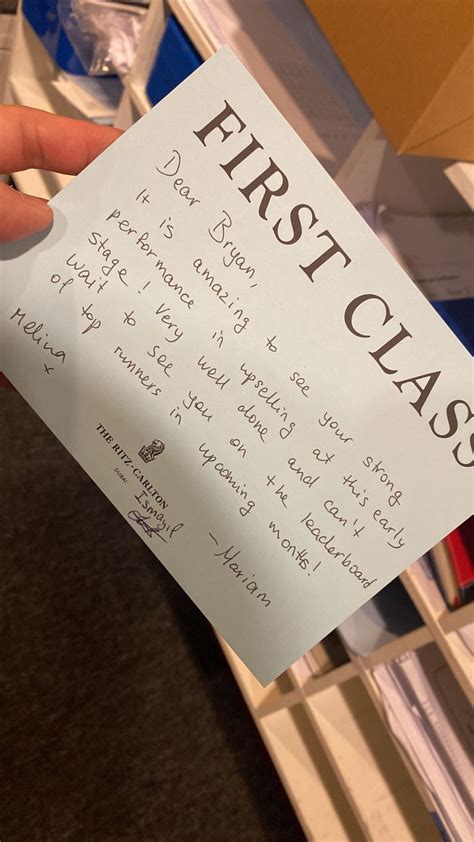 FIRST CLASS
Dear Bryan,
It is amazing to see your strong
performance in upselling at this early
stage! Very well done and can't
wait to see you on the leaderboard
of top runners in upcoming months!
- Mariam
Melina
x
THE RITZ-CARLTON
DUBAI
Ismayil